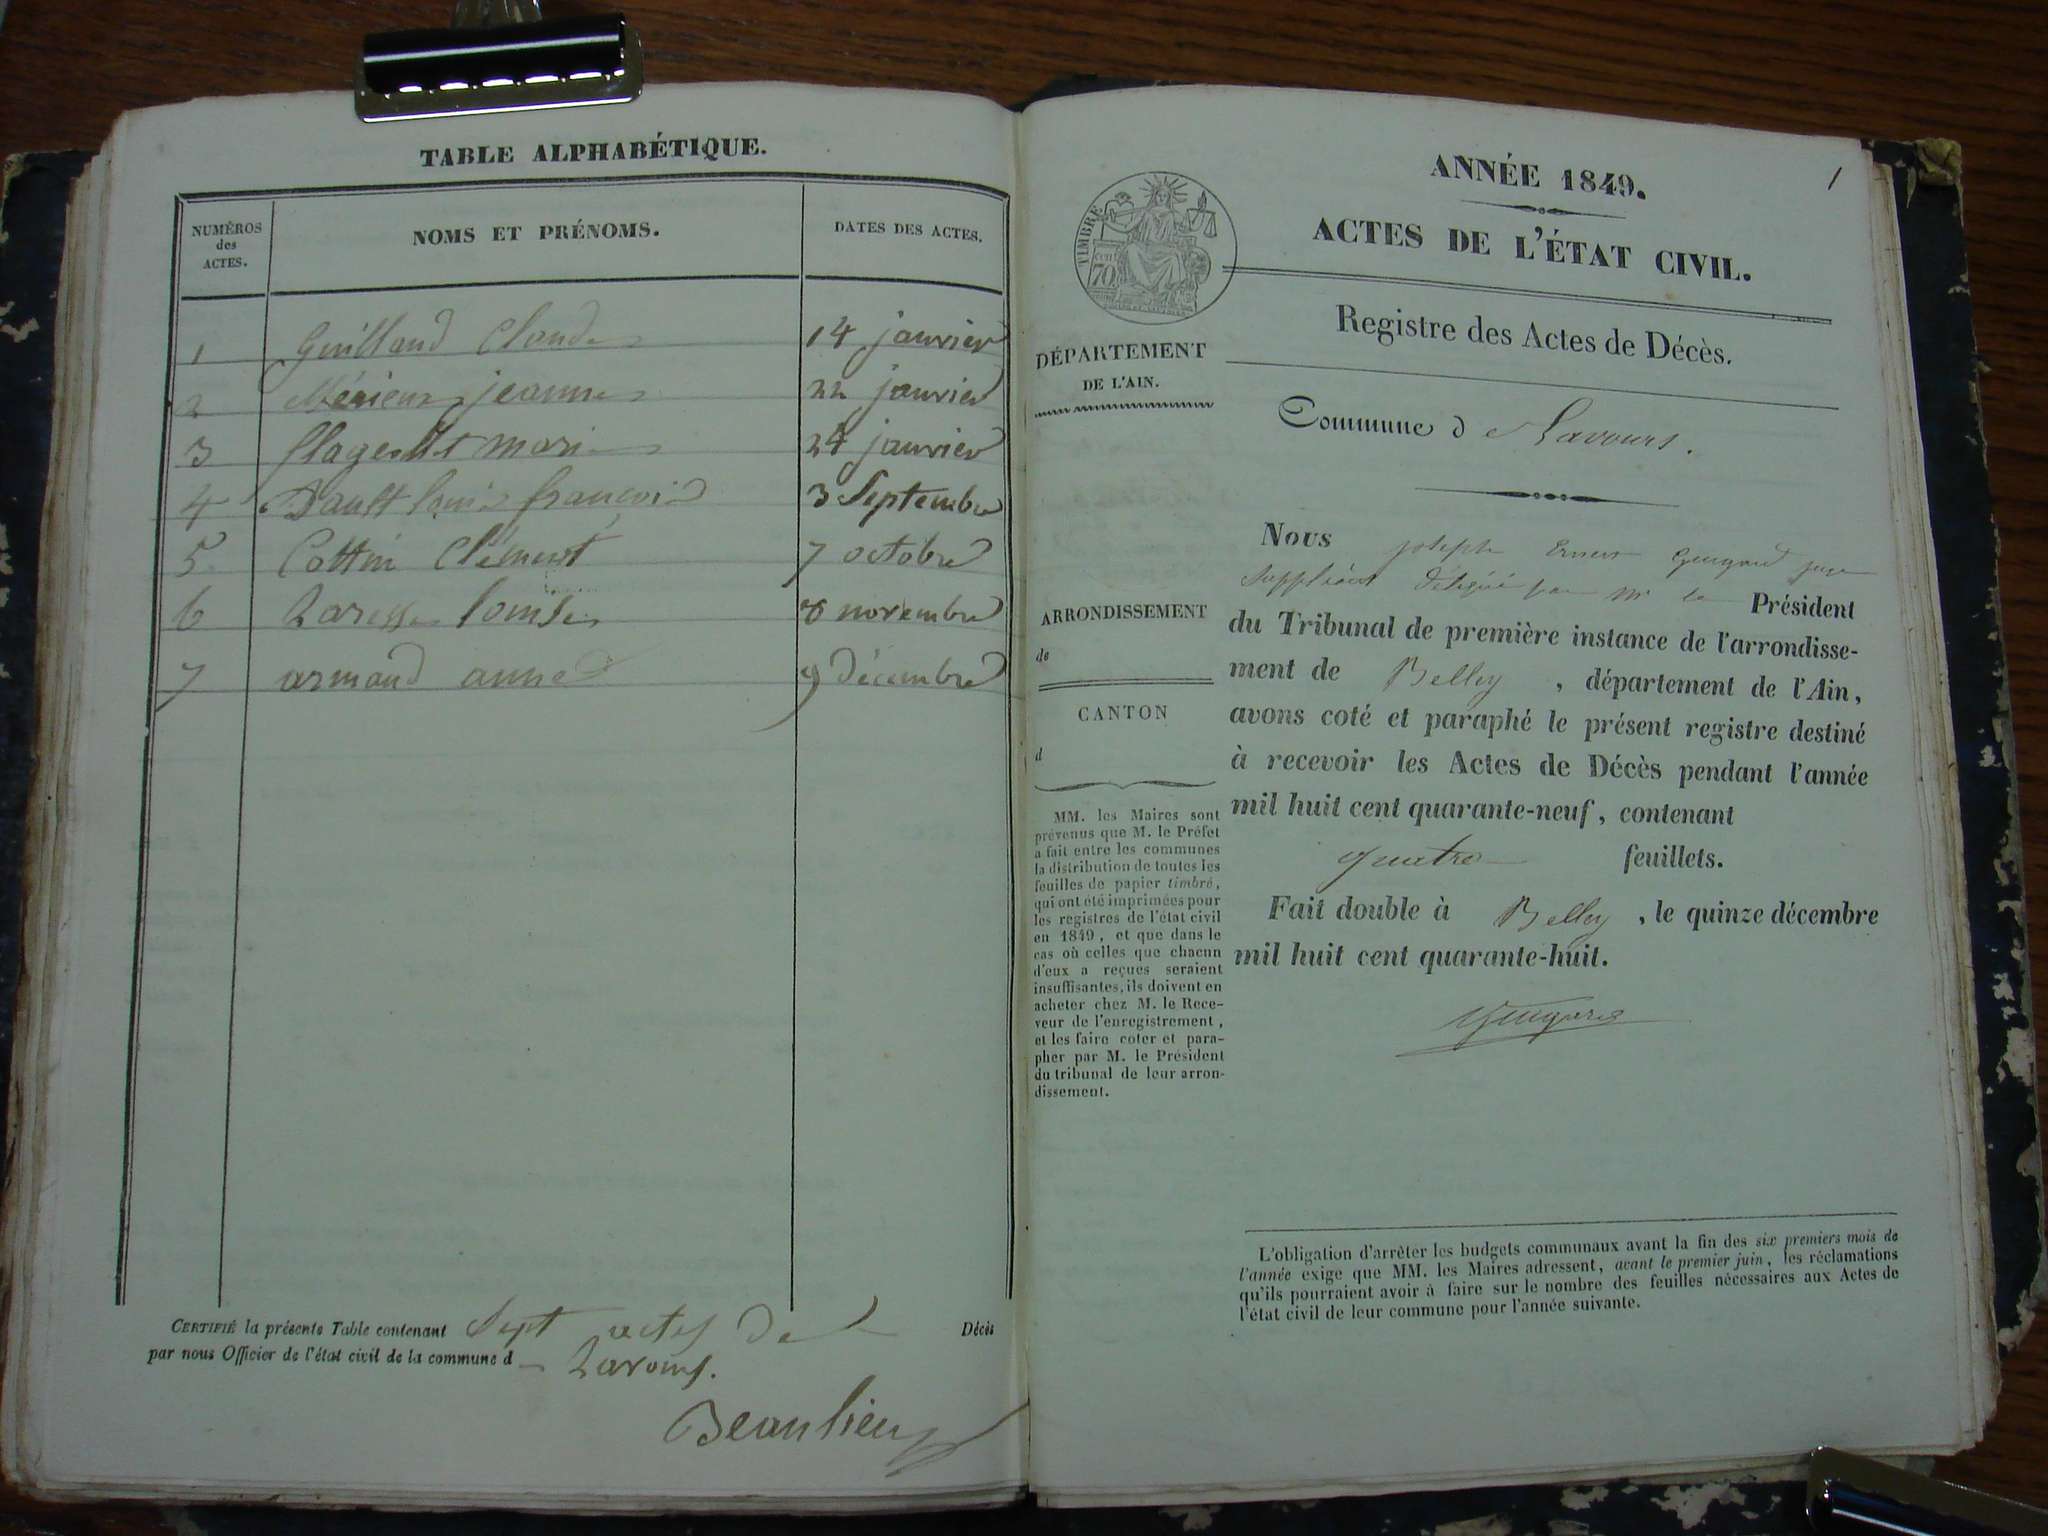 TABLE ALPHABÉTIQUE.
NUMÉROS des ACTES.
NOMS ET PRÉNOMS.
DATES DES ACTES.
1 Guilland Claude 14 janvier
2 jeanne 22 janvier
3 marie 24 janvier
4 louis françois 3 Septembre
5 Cottin Clément 7 octobre
6 louise 8 novembre
7 armand anne 9 décembre
CERTIFIÉ la présente Table contenant Sept actes de Décès
par nous Officier de l'état civil de la commune d Lavours.
Beaulieu
1
ANNÉE 1849.
ACTES DE L'ÉTAT CIVIL.
TIMBRE
70
Registre des Actes de Décès.
DÉPARTEMENT
DE L'AIN.
Commune de Lavours.
ARRONDISSEMENT
de
CANTON
d
MM. les Maires sont
prévenus que M. le Préfet
a fait entre les communes
la distribution de toutes les
feuilles de papier timbré,
qui ont été imprimées pour
les registres de l'état civil
en 1849, et que dans le
cas où celles que chacun
d'eux a reçues seraient
insuffisantes, ils doivent en
acheter chez M. le Rece-
veur de l'enregistrement,
et les faire coter et para-
pher par M. le Président
du tribunal de leur arron-
dissement.
Nous joseph juge
suppléant délégué par Mr le Président
du Tribunal de première instance de l'arrondisse-
ment de Belley, département de l'Ain,
avons coté et paraphé le présent registre destiné
à recevoir les Actes de Décès pendant l'année
mil huit cent quarante-neuf, contenant
quatre feuillets.
Fait double à Belley, le quinze décembre
mil huit cent quarante-huit.
L'obligation d'arrêter les budgets communaux avant la fin des six premiers mois de
l'année exige que MM. les Maires adressent, avant le premier juin, les réclamations
qu'ils pourraient avoir à faire sur le nombre des feuilles nécessaires aux Actes de
l'état civil de leur commune pour l'année suivante.